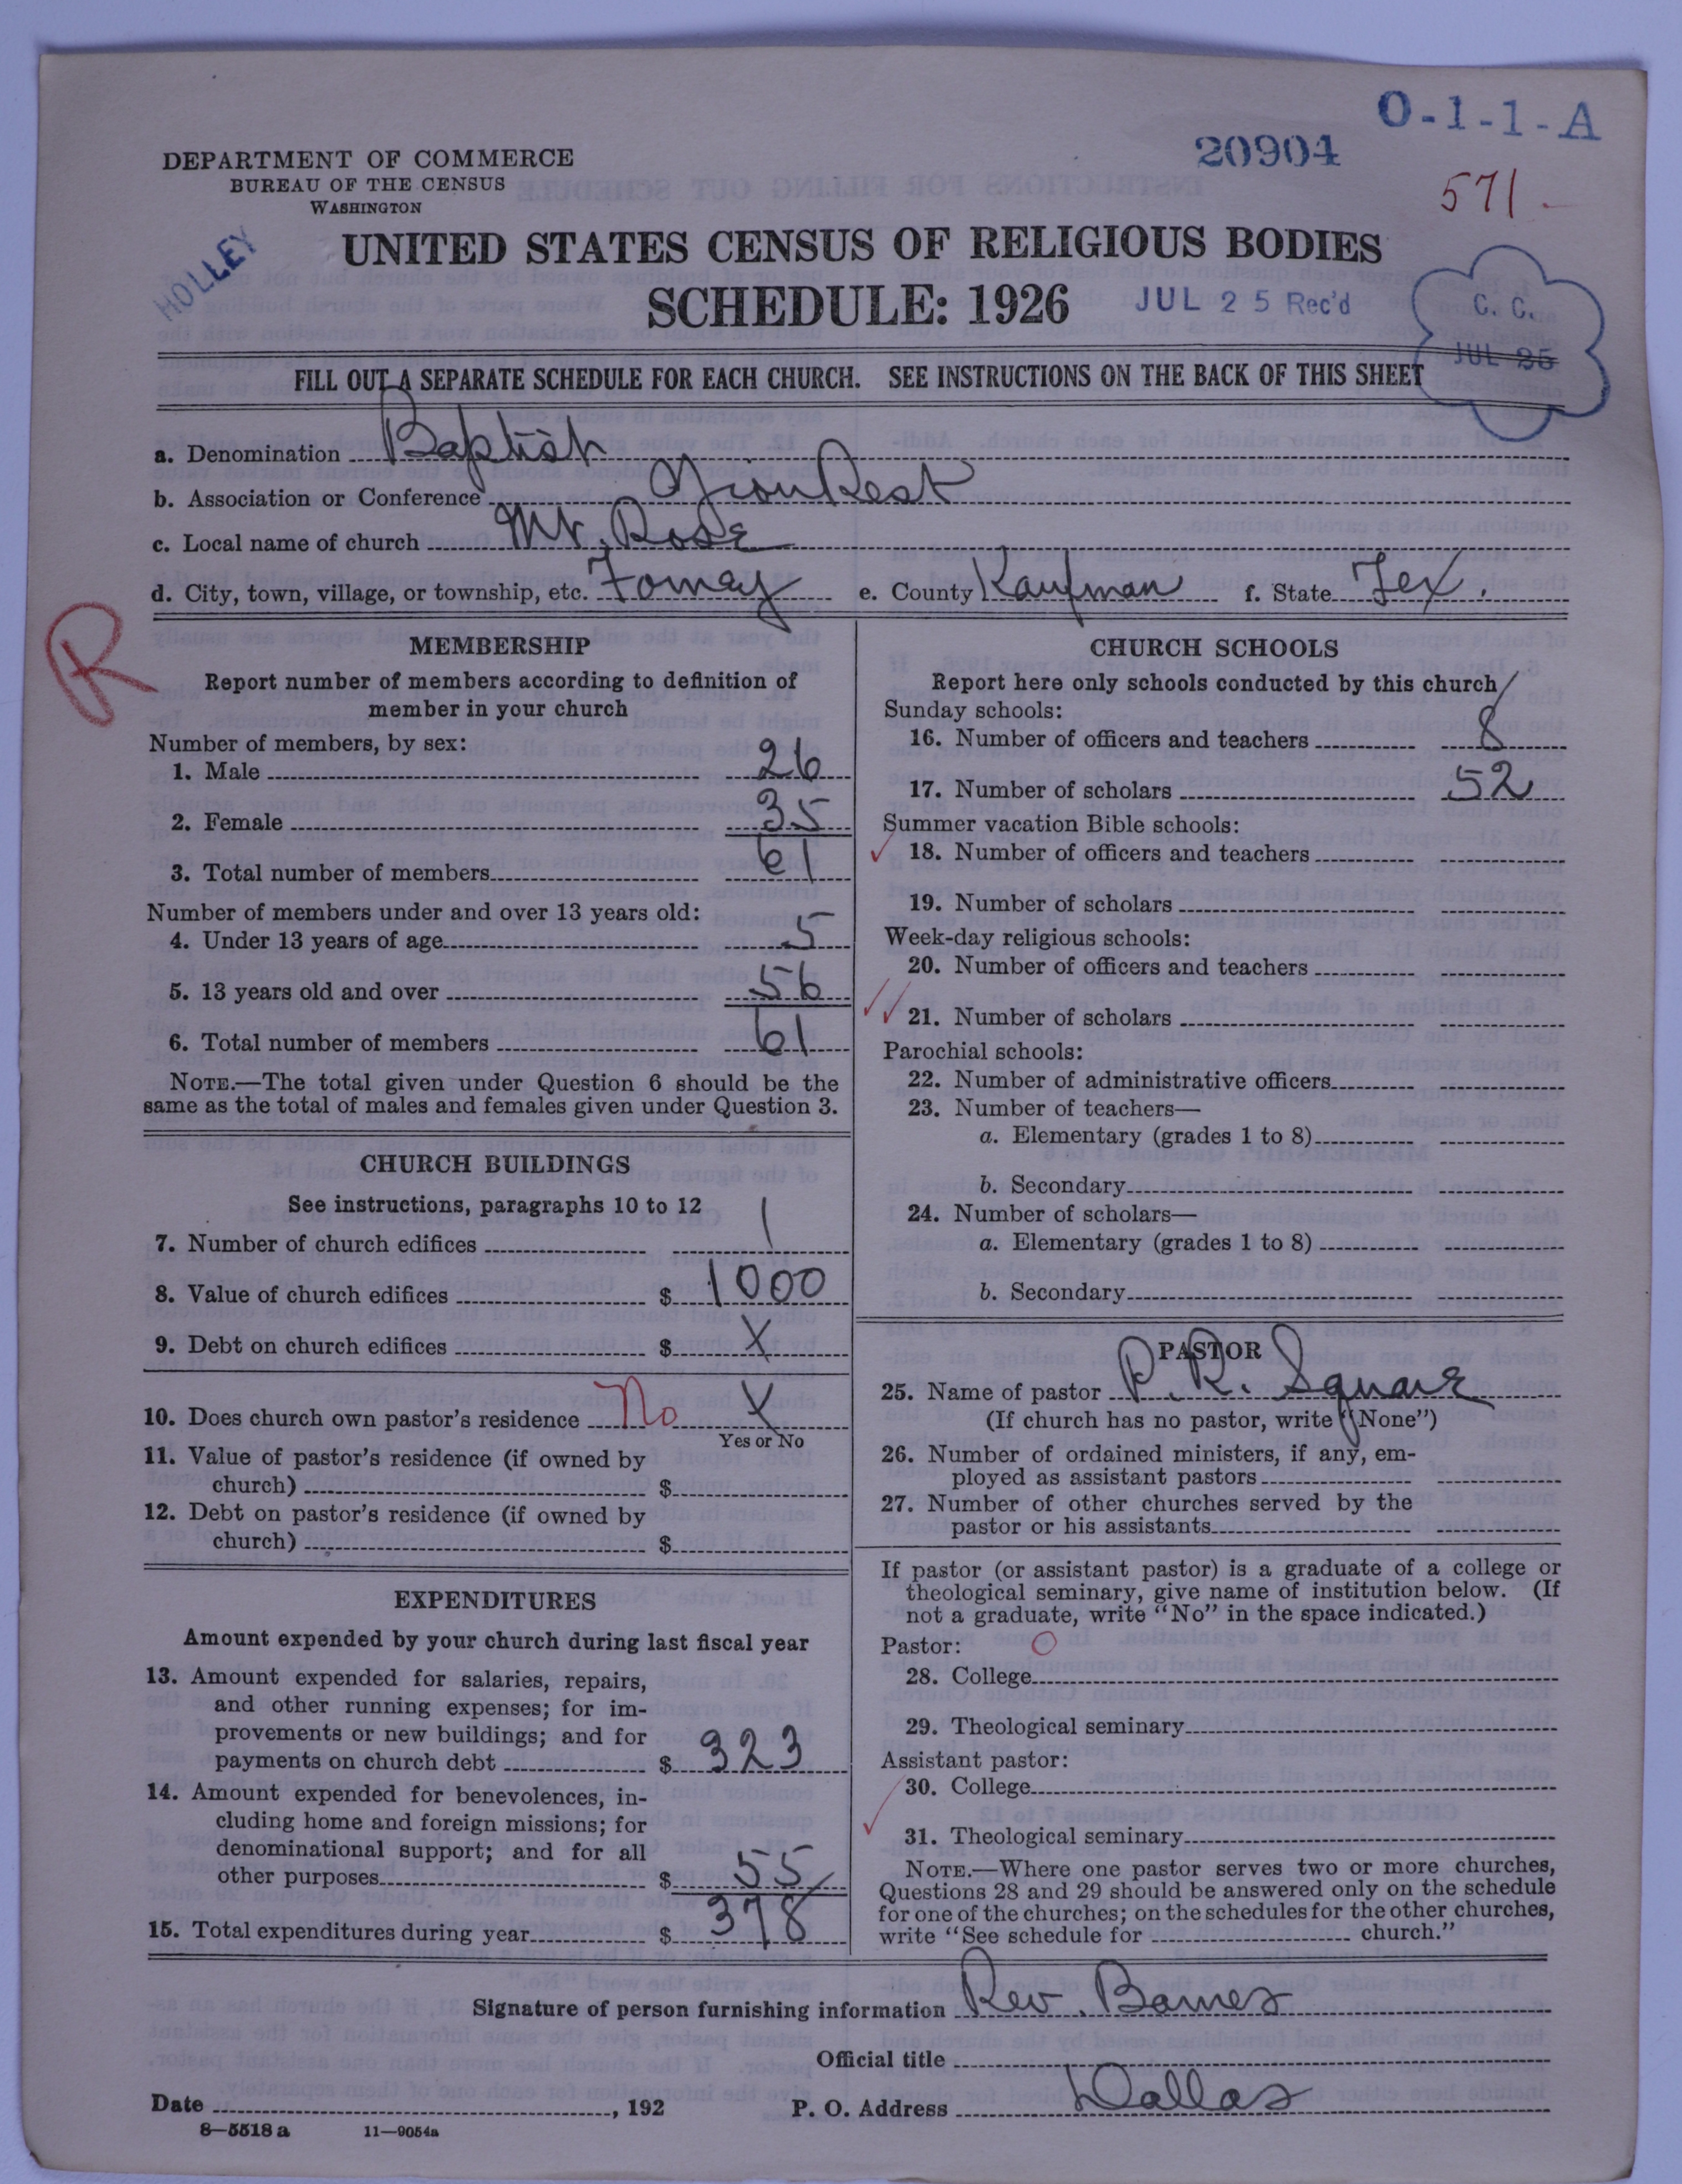 O-1-1-A
20904
571
DEPARTMENT OF COMMERCE
BUREAU OF THE CENSUS
WASHINGTON
HOLLEY
UNITED STATES CENSUS OF RELIGIOUS BODIES
SCHEDULE: 1926
JUL 25 Rec'd
C. C.
JUL 25
FILL OUT A SEPARATE SCHEDULE FOR EACH CHURCH. SEE INSTRUCTIONS ON THE BACK OF THIS SHEET
a. Denomination Baptist
b. Association or Conference Zion Rest
c. Local name of church Mt. Rose
d. City, town, village, or township, etc. Forney e. County Kaufman f. State Tex.
R
MEMBERSHIP
Report number of members according to definition of
member in your church
Number of members, by sex:
1. Male 26
2. Female 35
3. Total number of members 61
Number of members under and over 13 years old:
4. Under 13 years of age 5
5. 13 years old and over 56
6. Total number of members 61
NOTE.—The total given under Question 6 should be the
same as the total of males and females given under Question 3.
CHURCH BUILDINGS
See instructions, paragraphs 10 to 12
7. Number of church edifices 1
8. Value of church edifices $ 1000
9. Debt on church edifices $ X
10. Does church own pastor's residence No X
Yes or No
11. Value of pastor's residence (if owned by
church) $
12. Debt on pastor's residence (if owned by
church) $
EXPENDITURES
Amount expended by your church during last fiscal year
13. Amount expended for salaries, repairs,
and other running expenses; for im-
provements or new buildings; and for
payments on church debt $ 323
14. Amount expended for benevolences, in-
cluding home and foreign missions; for
denominational support; and for all
other purposes $ 55
15. Total expenditures during year $ 378
CHURCH SCHOOLS
Report here only schools conducted by this church
Sunday schools:
16. Number of officers and teachers 8
17. Number of scholars 52
Summer vacation Bible schools:
18. Number of officers and teachers
19. Number of scholars
Week-day religious schools:
20. Number of officers and teachers
21. Number of scholars
Parochial schools:
22. Number of administrative officers
23. Number of teachers—
a. Elementary (grades 1 to 8)
b. Secondary
24. Number of scholars—
a. Elementary (grades 1 to 8)
b. Secondary
PASTOR
25. Name of pastor P. R. Squair
(If church has no pastor, write "None")
26. Number of ordained ministers, if any, em-
ployed as assistant pastors
27. Number of other churches served by the
pastor or his assistants
If pastor (or assistant pastor) is a graduate of a college or
theological seminary, give name of institution below. (If
not a graduate, write "No" in the space indicated.)
Pastor: O
28. College
29. Theological seminary
Assistant pastor:
30. College
31. Theological seminary
NOTE.—Where one pastor serves two or more churches,
Questions 28 and 29 should be answered only on the schedule
for one of the churches; on the schedules for the other churches,
write "See schedule for church."
Signature of person furnishing information Rev. Barnes
Official title
Date , 192 P. O. Address Dallas
8—5518 a 11—9054a